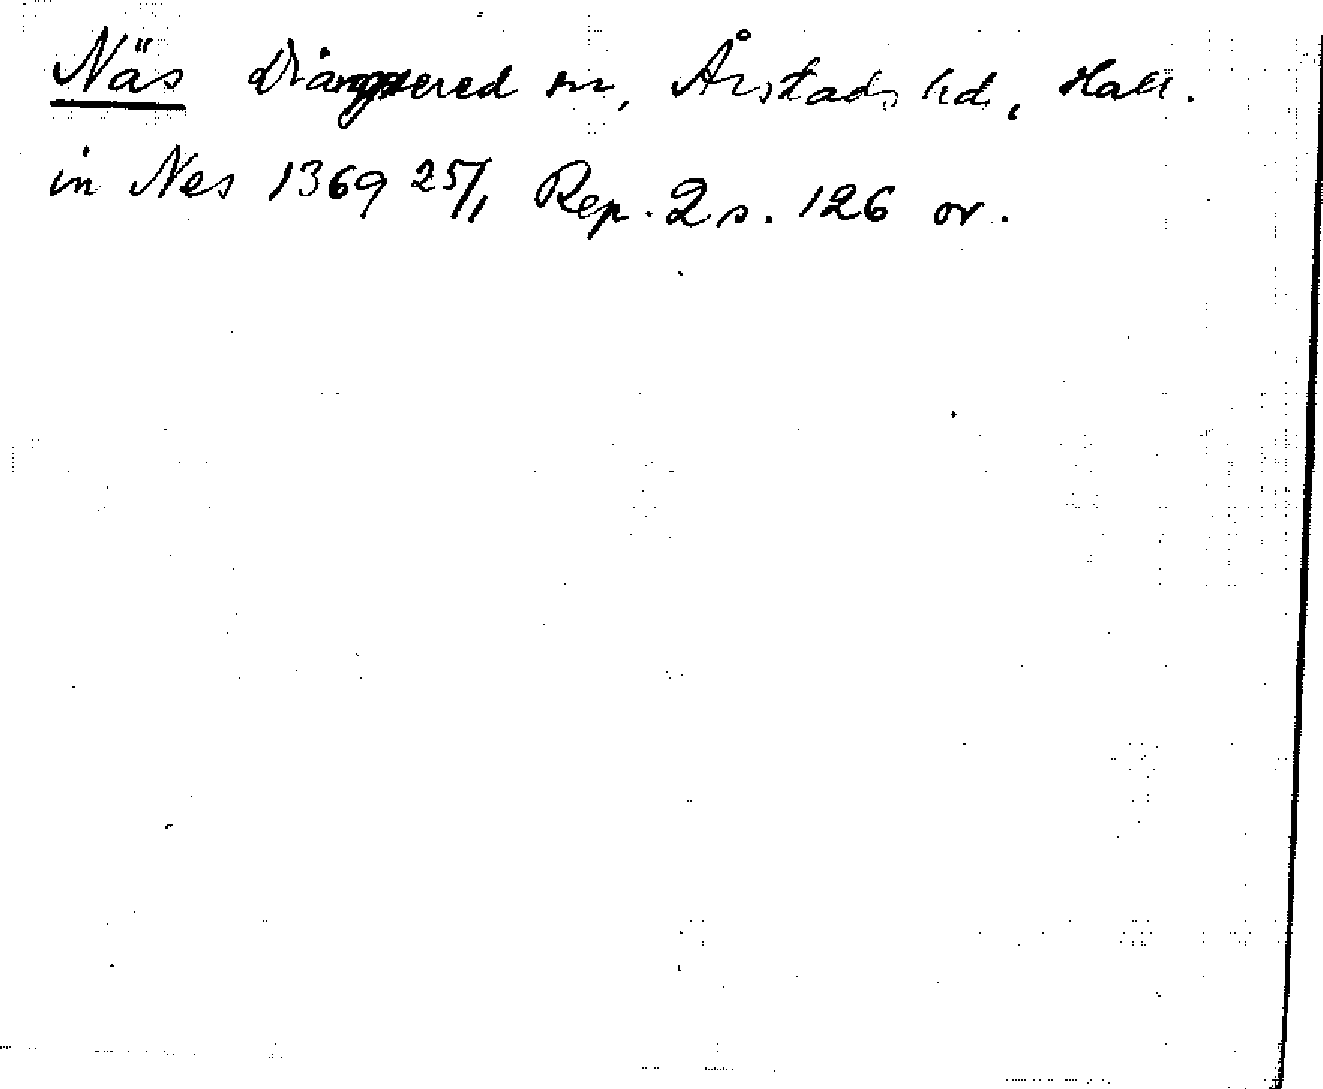 Näs Drängsered sn, Årstads hd, Hall.
in Nes 1369 25/1 Rep. 2 s. 126 or.